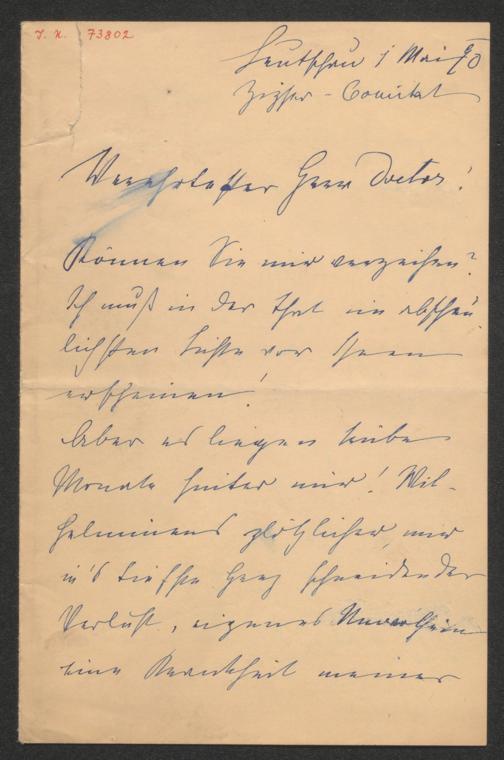 J. N. 73802
Leutschau 1 Mai 90
Zipser-Comitat
Verehrtester Herr Doctor!
Können Sie mir verzeihen?
Ich muß in der That im abscheu
lichsten Lichte vor Ihnen
erscheinen!
Aber es liegen trübe
Monate hinter mir! Wil-
helminens plötzlicher, mir
in's tiefste Herz schneidender
Verlust, eigenes Unwohlsein
eine Krankheit meiner